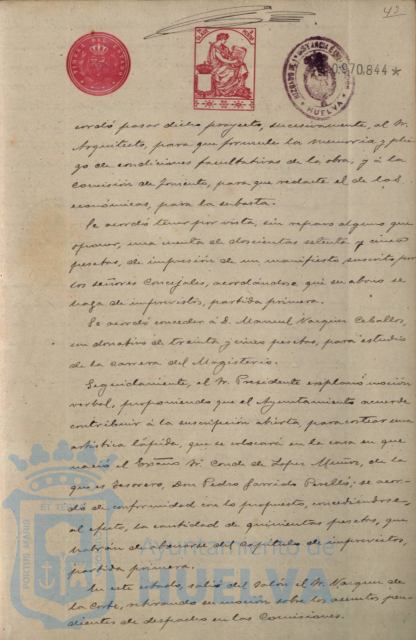 42
0.970.844 *
HUELVA
cordó pasar dicho proyecto, sucesivamente, al Sr.
Arquitecto, para que formule la memoria y plie
go de condiciones facultativas de la obra, y á la
Comisión de fomento, para que redacte el de las
económicas, para la subasta.
Se acordó tener por vista, sin reparo alguno que
oponer, una cuenta de doscientas setenta y cinco
pesetas, de impresión de un manifiesto suscrito por
los señores Concejales, acordándose que su abono se
haga de imprevistos, partida primera.
Se acordó conceder á D. Manuel Vazquez Ceballos,
un donativo de treinta y cinco pesetas, para estudios
de la carrera del Magisterio.
Seguidamente, el Sr. Presidente explanó moción
verbal, proponiendo que el Ayuntamiento acuerde
contribuir á la suscripción abierta, para costear una
artística lápida, que se colocará en la casa en que
nació el Excmo Sr. Conde de Lopez Muñoz, de la
que es tesorero, Don Pedro Garrido Perelló; se acor-
dó de conformidad con lo propuesto, concediéndose,
al efecto, la cantidad de quinientas pesetas, que
habrán de abonarse del Capítulo de imprevistos,
partida primera.
En este estado salió del Salón el Sr. Vazquez de
la Corte, retirando su moción sobre los asuntos pen-
dientes de despacho en las Comisiones.
PORTUS MARIS
Ayuntamiento de
HUELVA